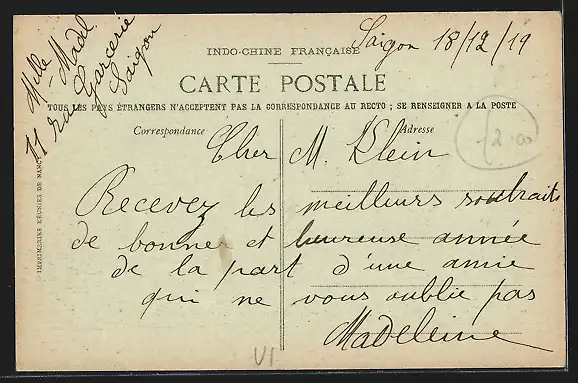 Mlle Madel
11 rue Garcerie
Saigon
Saigon 18/12/19
INDO-CHINE FRANÇAISE
CARTE POSTALE
TOUS LES PAYS ÉTRANGERS N'ACCEPTENT PAS LA CORRESPONDANCE AU RECTO ; SE RENSEIGNER A LA POSTE
Correspondance
Adresse
12.00
Cher M. Klein
Recevez les meilleurs souhaits
de bonne et heureuse année
de la part d'une amie
qui ne vous oublie pas
Madeleine
VI
IMPRIMERIES RÉUNIES DE NANCY